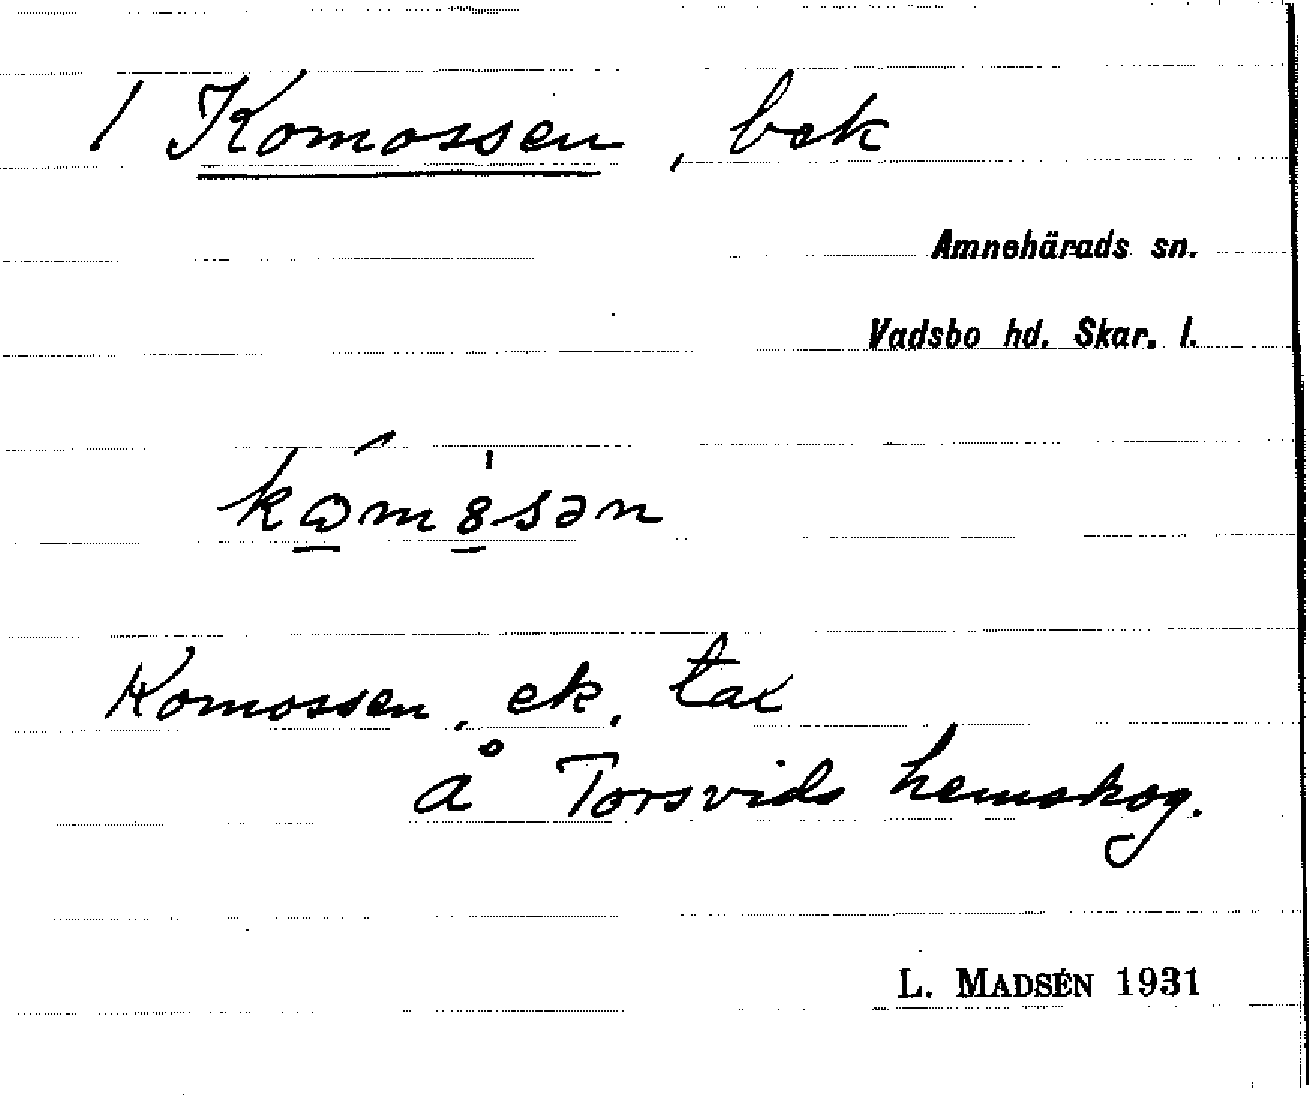 / Komossen, bek
Amnehärads sn.
Vadsbo hd. Skar. l.
Komossen, ek. tax
å Torsvids hemskog.
L. MADSÉN 1931